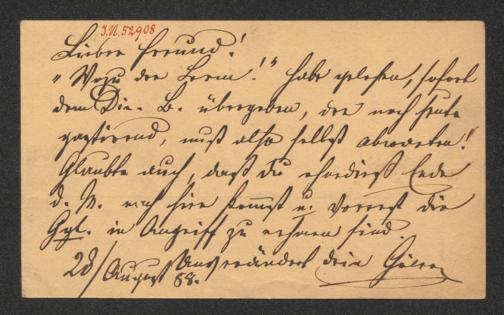 J.N. 52908
Lieber Freund!
"Wozu der Lärm!" habe gelesen, sofort
dem Dir. B. übergeben, der noch heute
gastirend, muß also selbst abwarten!
Glaubte auch, daß Du Ende
d. M. nach hier kommst u. die
in Angriff zu nehmen sind.
28/August 88. Unverändert Dein